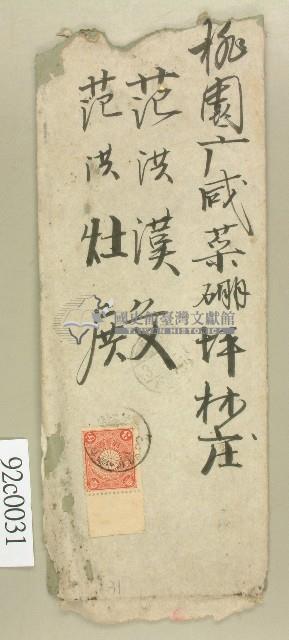 桃園广咸菜硼坪林庄
范洪漢
范洪灶
國史館臺灣文獻館
TAIWAN HISTORICA
92c0031
31